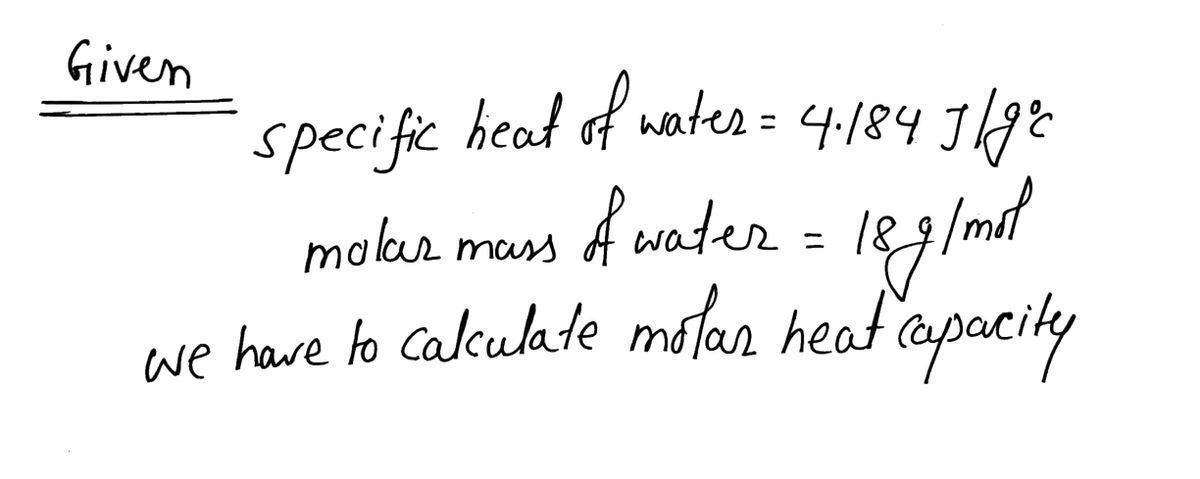 Given
specific heat of water = 4.184 J/g°c
molar mass of water = 18g/mol
we have to calculate molar heat capacity